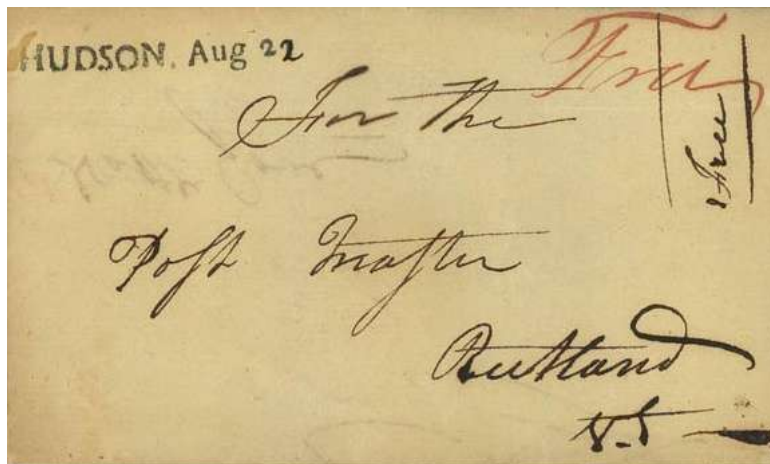 HUDSON. Aug 22
Free
Free
For the
Post Master
Rutland